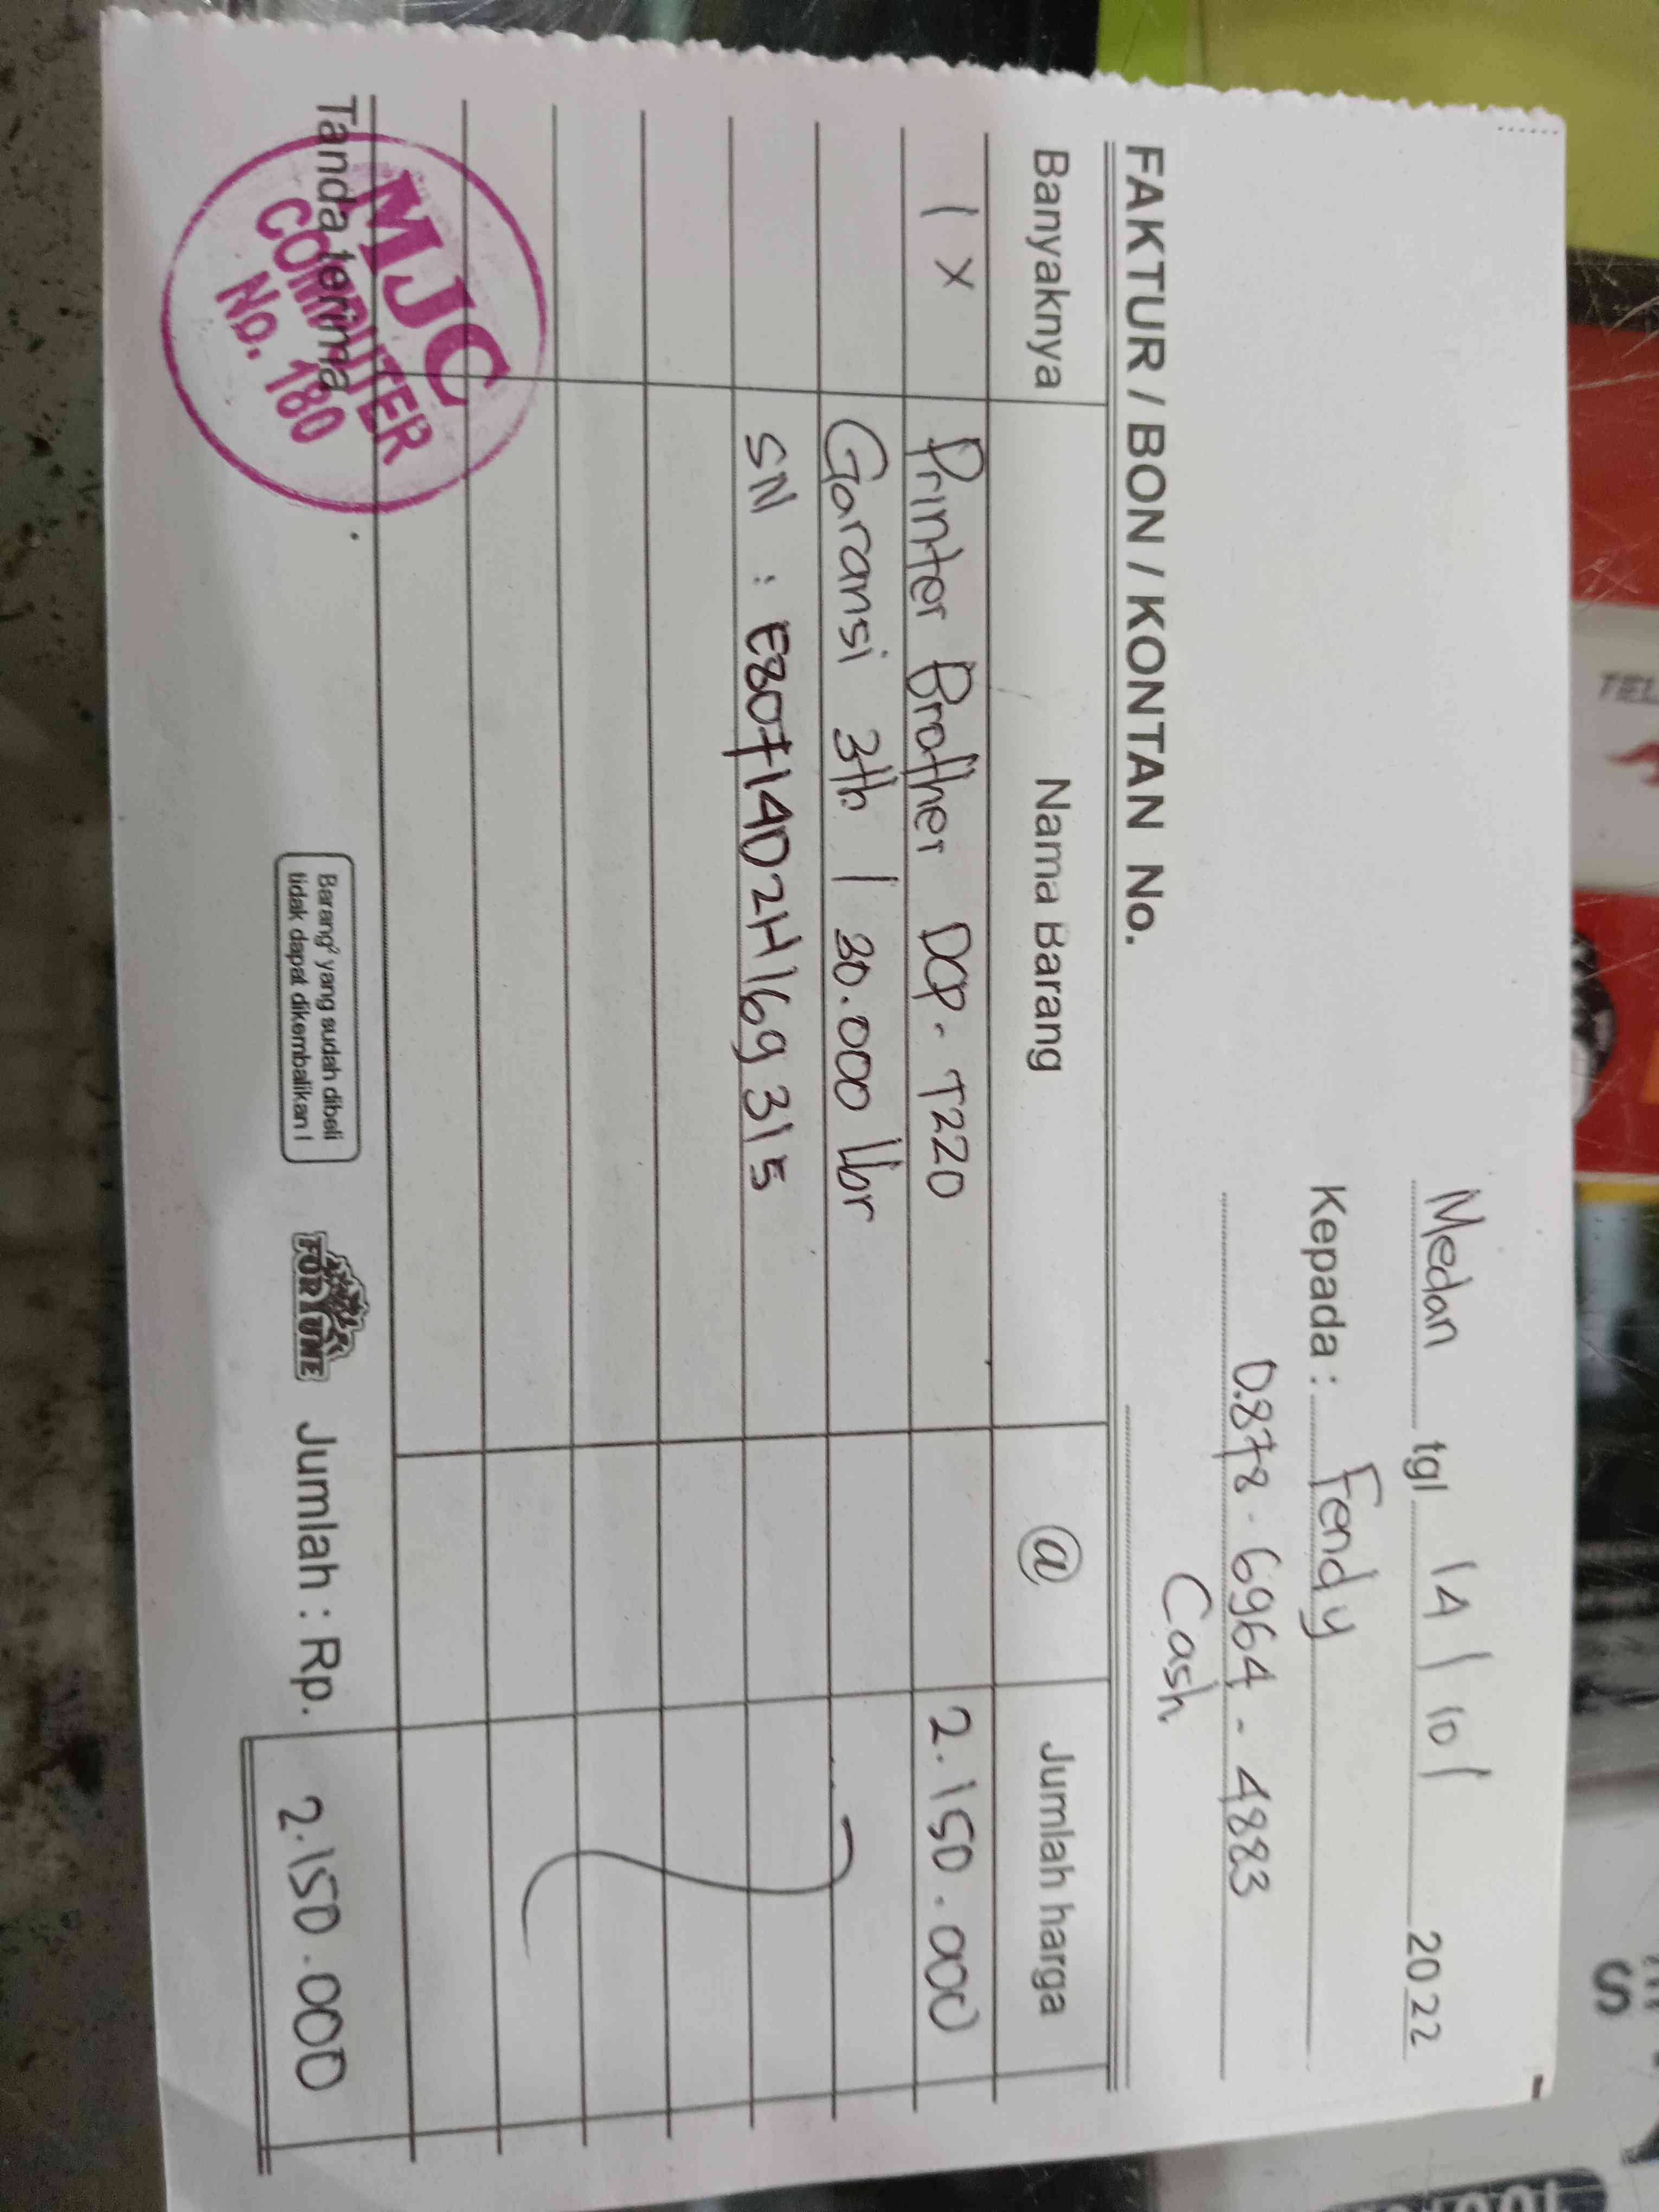 Medan tgl 14 / 10 / 2022
Kepada : Fendy
0878-6964-4883
Cash
FAKTUR / BON / KONTAN No.
Banyaknya Nama Barang @ Jumlah harga
1 x Printer Brother DCP-T220 2.150.000
Garansi 3th / 30.000 lbr
SN : E80714D2H169315
Tanda terima
MJC
COMPUTER
No. 180
Barang² yang sudah dibeli
tidak dapat dikembalikan !
FORTUNE
Jumlah : Rp. 2.150.000
TEL